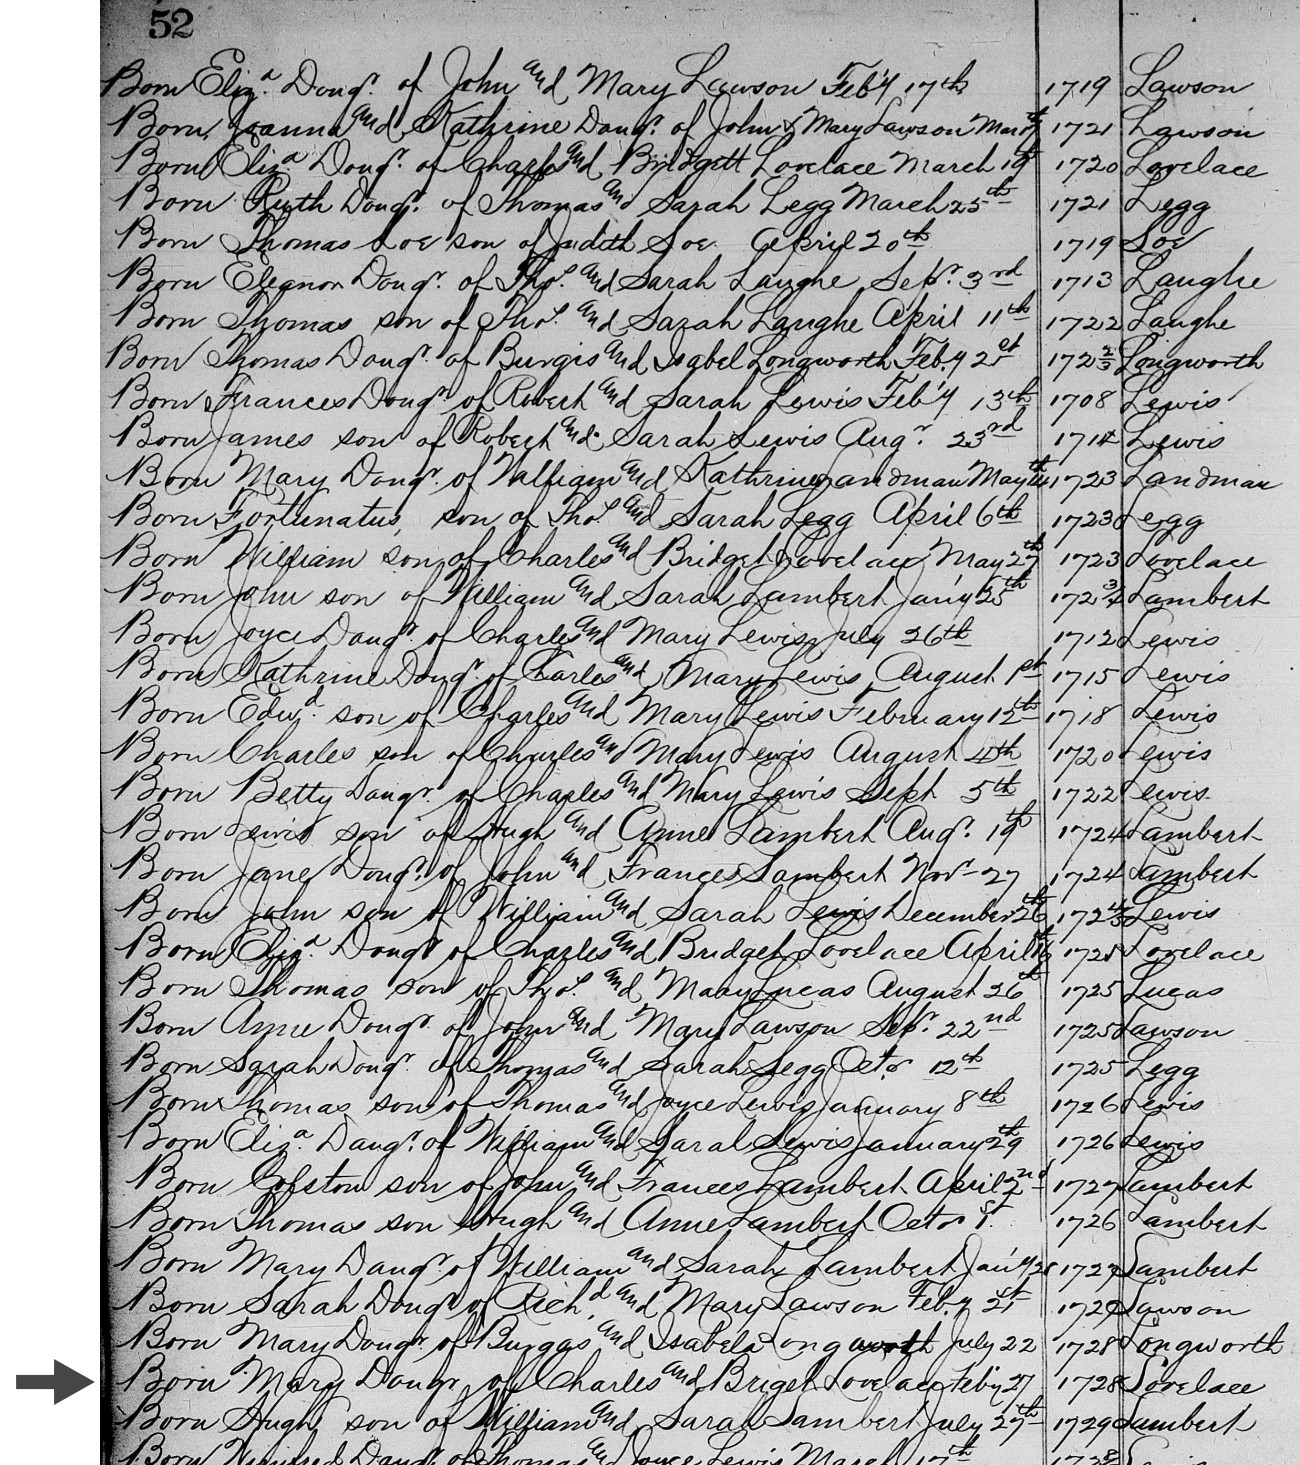 52
Born Eliz.a Daug.r of John and Mary Lawson Feb'y 17th 1719 Lawson
Born Joanna and Kathrine Daug.r of John & Mary Lawson Mar 1721 Lawson
Born Eliz.a Daug.r of Charles and Bridgett Lovelace March 19th 1720 Lovelace
Born Ruth Daug.r of Thomas and Sarah Legg March 25th 1721 Legg
Born Thomas Loe son of Judith Loe April 20th 1719 Loe
Born Eleanor Daug.r of Tho.s and Sarah Laughe Sep.r 3rd 1713 Laughe
Born Thomas son of Tho.s and Sarah Laughe April 11th 1722 Laughe
Born Thomas Daug.r of Burgis and Isabel Longworth Feb.y 2 172 2/3 Longworth
Born Frances Daug.r of Robert and Sarah Lewis Feb'y 13th 1708 Lewis
Born James son of Robert and Sarah Lewis Aug.r 23rd 1714 Lewis
Born Mary Daug.r of William and Kathrine Landman May 1723 Landman
Born Fortunatus son of Tho.s and Sarah Legg April 6th 1723 Legg
Born William son of Charles and Bridget Lovelace May 27th 1723 Lovelace
Born John son of William and Sarah Lambert Jan'y 25th 172 3/4 Lambert
Born Joyce Daug.r of Charles and Mary Lewis July 26th 1712 Lewis
Born Kathrine Daug.r of Charles and Mary Lewis August 1st 1715 Lewis
Born Edw.d son of Charles and Mary Lewis February 12th 1718 Lewis
Born Charles son of Charles and Mary Lewis August 4th 1720 Lewis
Born Betty Daug.r of Charles and Mary Lewis Sept 5th 1722 Lewis
Born Lewis son of Hugh and Anne Lambert Aug.r 19th 1724 Lambert
Born Jane Daug.r of John and Frances Lambert Nov.r 27 1724 Lambert
Born John son of William and Sarah Lewis December 26th 172 4/5 Lewis
Born Eliz.a Daug.r of Charles and Bridget Lovelace April 1725 Lovelace
Born Thomas son of Tho.s and Mary Lucas August 26th 1725 Lucas
Born Anne Daug.r of John and Mary Lawson Sep.r 22nd 1725 Lawson
Born Sarah Daug.r of Thomas and Sarah Legg Oct.r 12th 1725 Legg
Born Thomas son of Thomas and Joyce Lewis January 8th 1726 Lewis
Born Eliz.a Daug.r of William and Sarah Lewis January 29th 1726 Lewis
Born Colston son of John and Frances Lambert April 2nd 1727 Lambert
Born Thomas son Hough and Anne Lambert Oct.r 1st 1726 Lambert
Born Mary Daug.r of William and Sarah Lambert Jan'y 28 1727 Lambert
Born Sarah Daug.r of Rich.d and Mary Lawson Feb.y 21st 1727 Lawson
Born Mary Daug.r of Burgas and Isabela Longworth July 22 1728 Longworth
Born Mary Daug.r of Charles and Briget Lovelace Feb'y 27 1728 Lovelace
Born Hugh son of William and Sarah Lambert July 27th 1729 Lambert
Born Winifred Daug.r of Thomas and Joyce Lewis March 17th 1728 Lewis